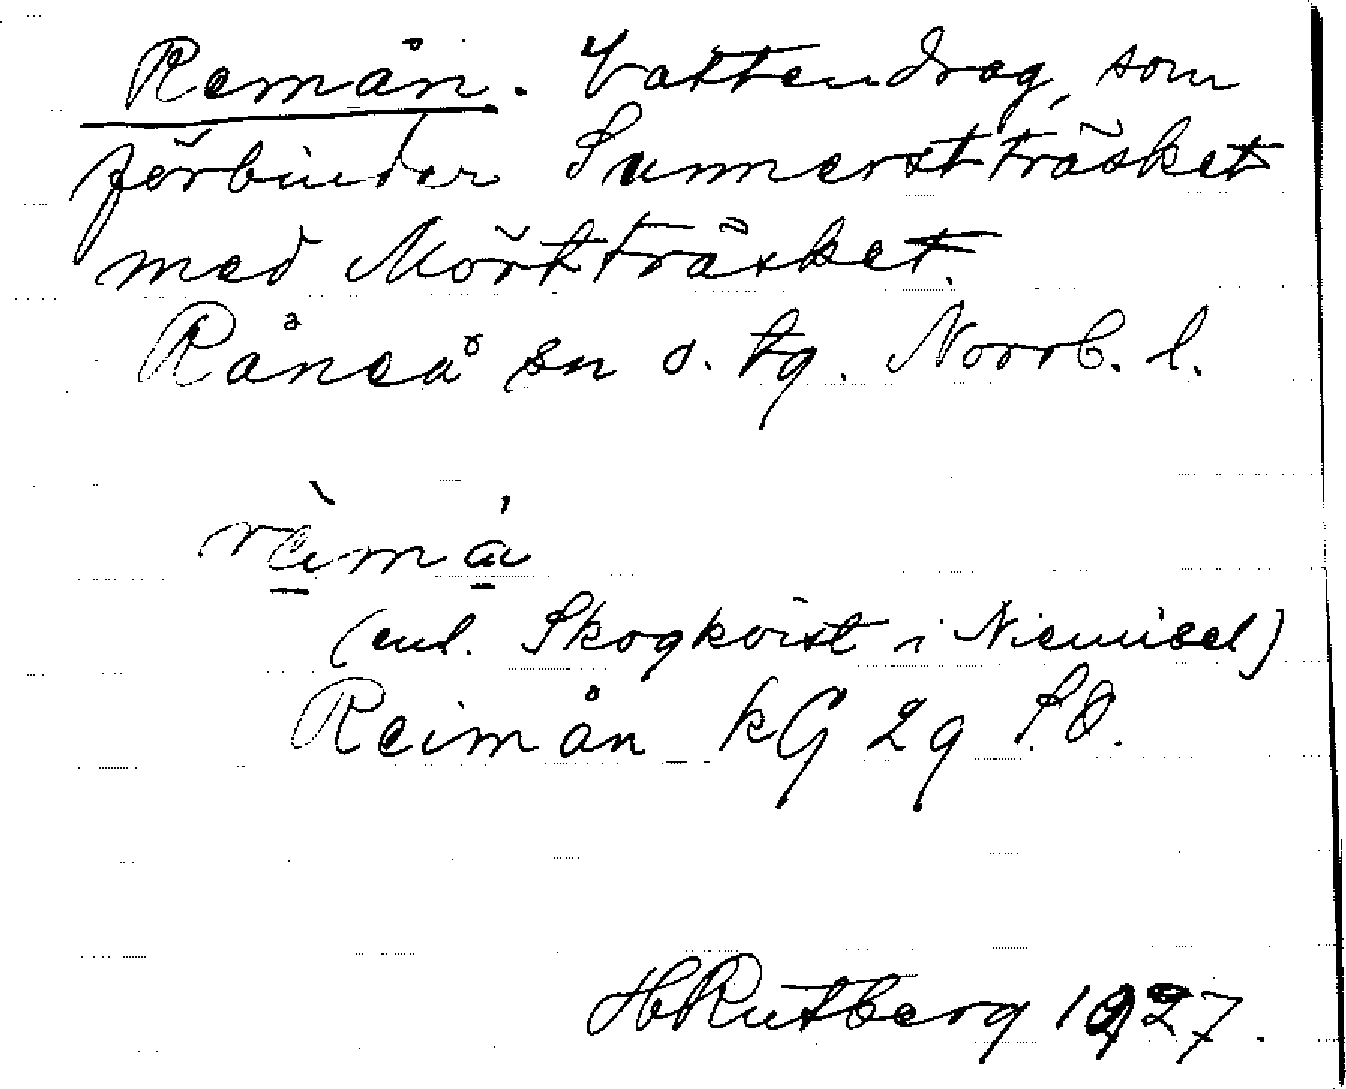 Remån. Vattendrag, som
förbinder Sunnerstträsket
med Mörtträsket.
Råneå sn o. tg. Norrb. l.
rèimá
(enl. Skogkvist i Niemisel)
Reimån kG 29 S.O.
HRutberg 1927.